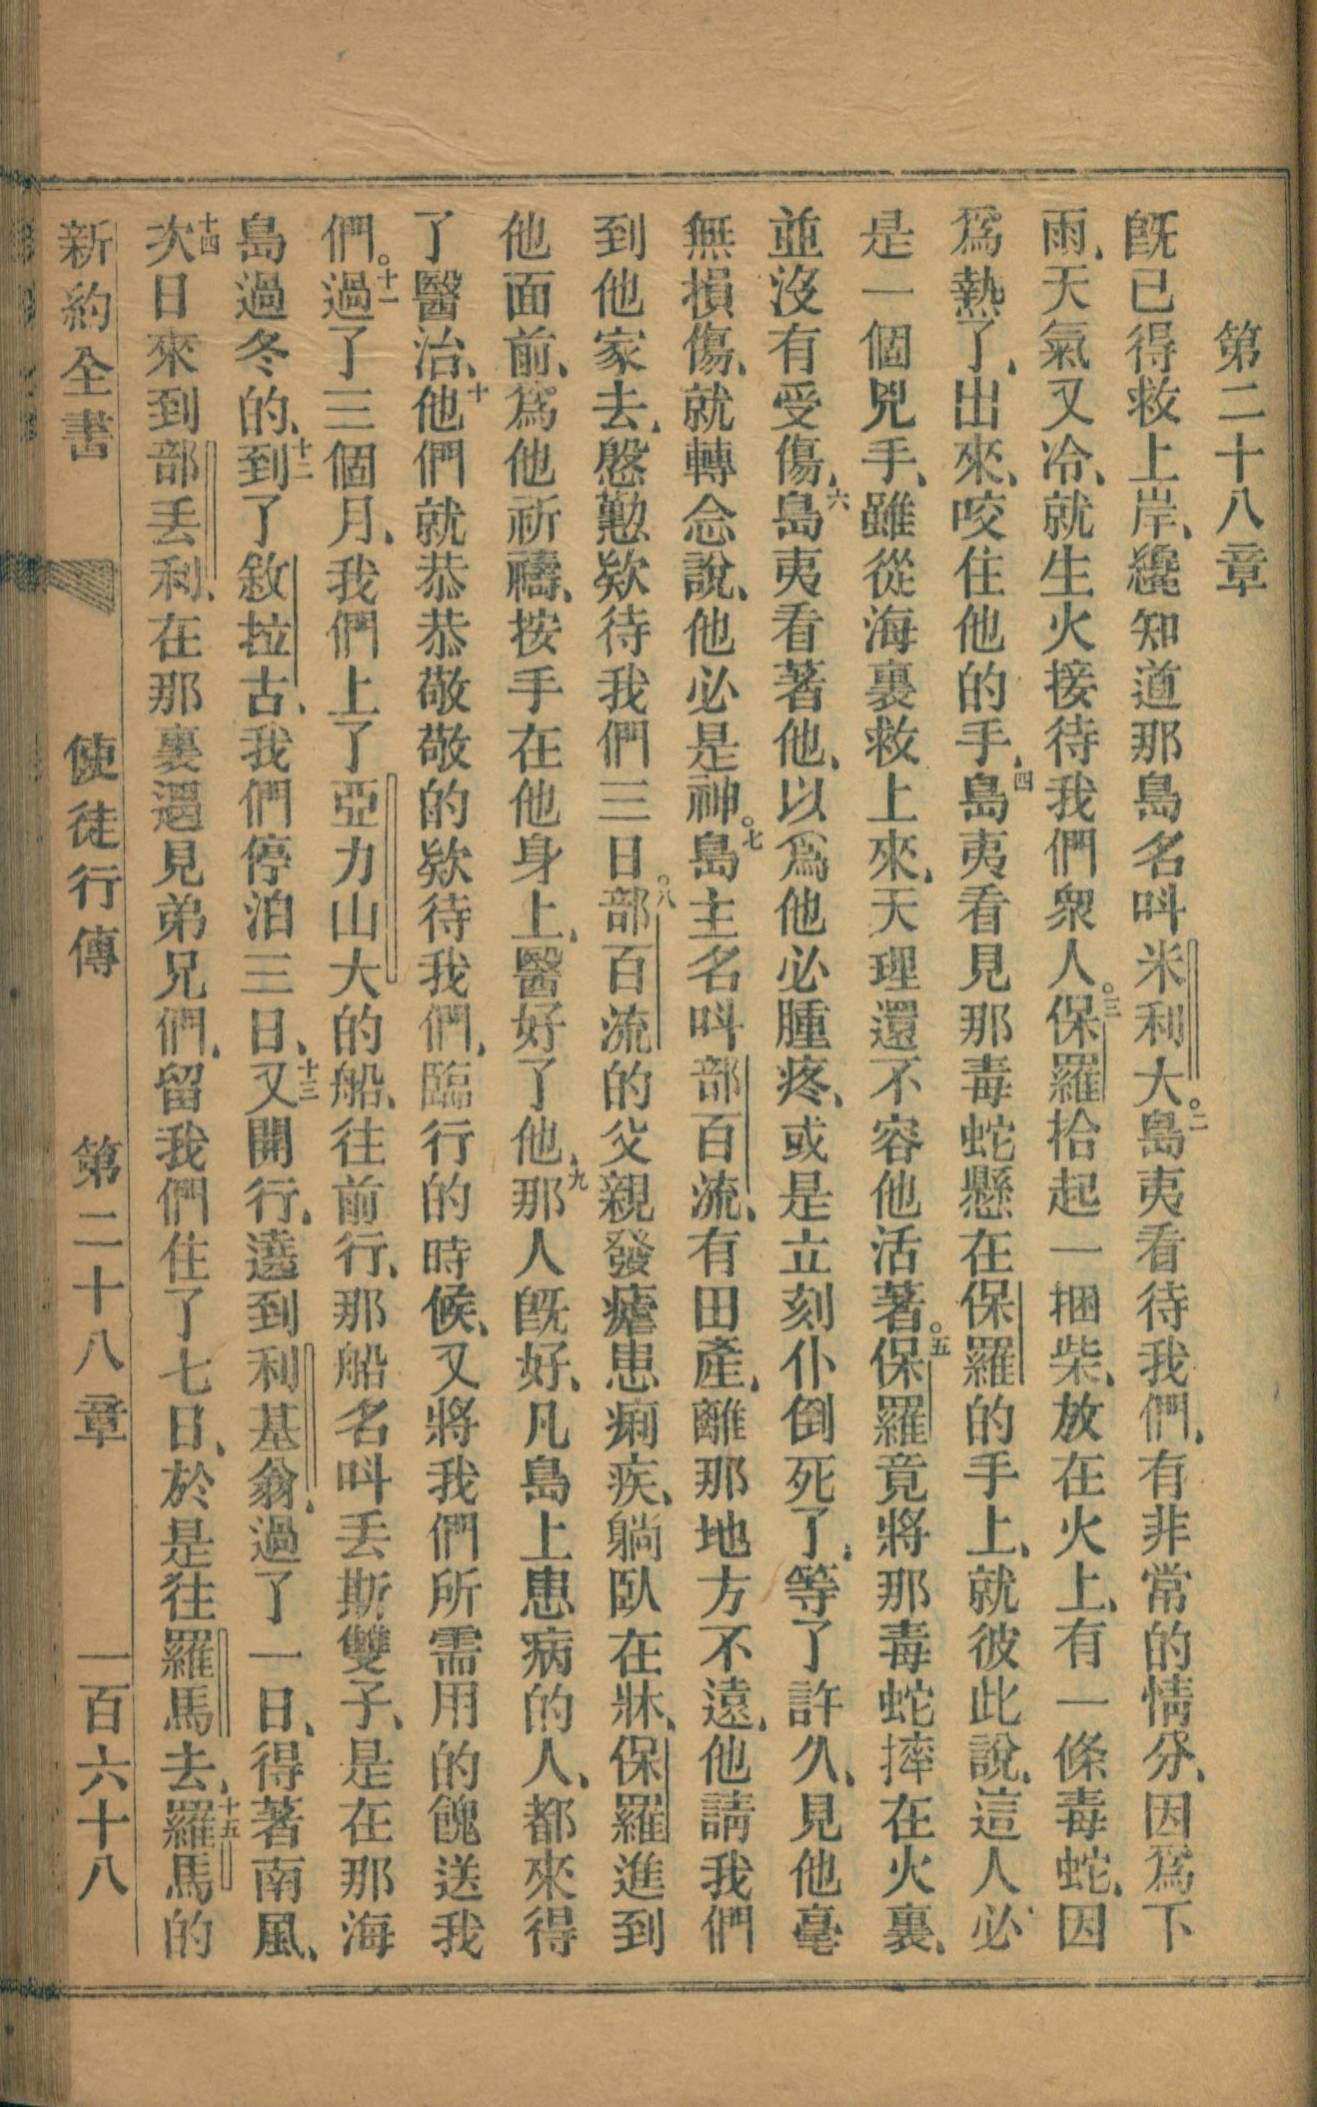 第二十八章
既已得救上岸、纔知道那島名呌米利大。二島夷看待我們、有非常的情分、因爲下
雨、天氣又冷、就生火接待我們衆人。三保羅拾起一捆柴、放在火上、有一條毒蛇、因
爲熱了、出來、咬住他的手、四島夷看見那毒蛇懸在保羅的手上、就彼此說、這人必
是一個兇手、雖從海裏救上來、天理還不容他活著。五保羅竟將那毒蛇摔在火裏、
並沒有受傷、六島夷看著他、以爲他必腫疼、或是立刻仆倒死了、等了許久、見他毫
無損傷、就轉念說、他必是神。七島主名呌部百流、有田產、離那地方不遠、他請我們
到他家去、慇懃欵待我們三日。八部百流的父親發瘧患痢疾、躺臥在牀、保羅進到
他面前、爲他祈禱、按手在他身上、醫好了他、九那人既好、凡島上患病的人、都來得
了醫治、十他們就恭恭敬敬的欵待我們、臨行的時候、又將我們所需用的餽送我
們。十一過了三個月、我們上了亞力山大的船、往前行、那船名呌丢斯雙子、是在那海
島過冬的、十二到了敘拉古、我們停泊三日、十三又開行、遶到利基翁、過了一日、得著南風、
十四次日來到部丢利、在那裏遇見弟兄們、留我們住了七日、於是往羅馬去、十五羅馬的
新約全書 使徒行傳 第二十八章 一百六十八